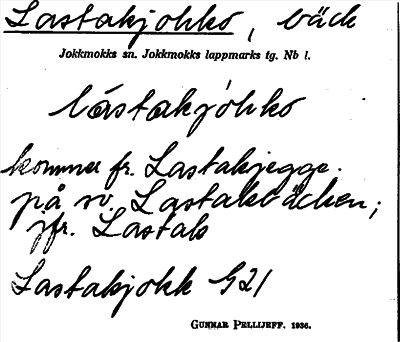 Lastakjohko, bäck
Jokkmokks sn. Jokkmokks lappmarks tg. Nb l.
lástakjòhko
kommer fr. Lastakjegge.
på sv. Lastakbäcken;
jfr. Lastak
Lastakjokk G21
GUNNAR PELLIJEFF. 1936.